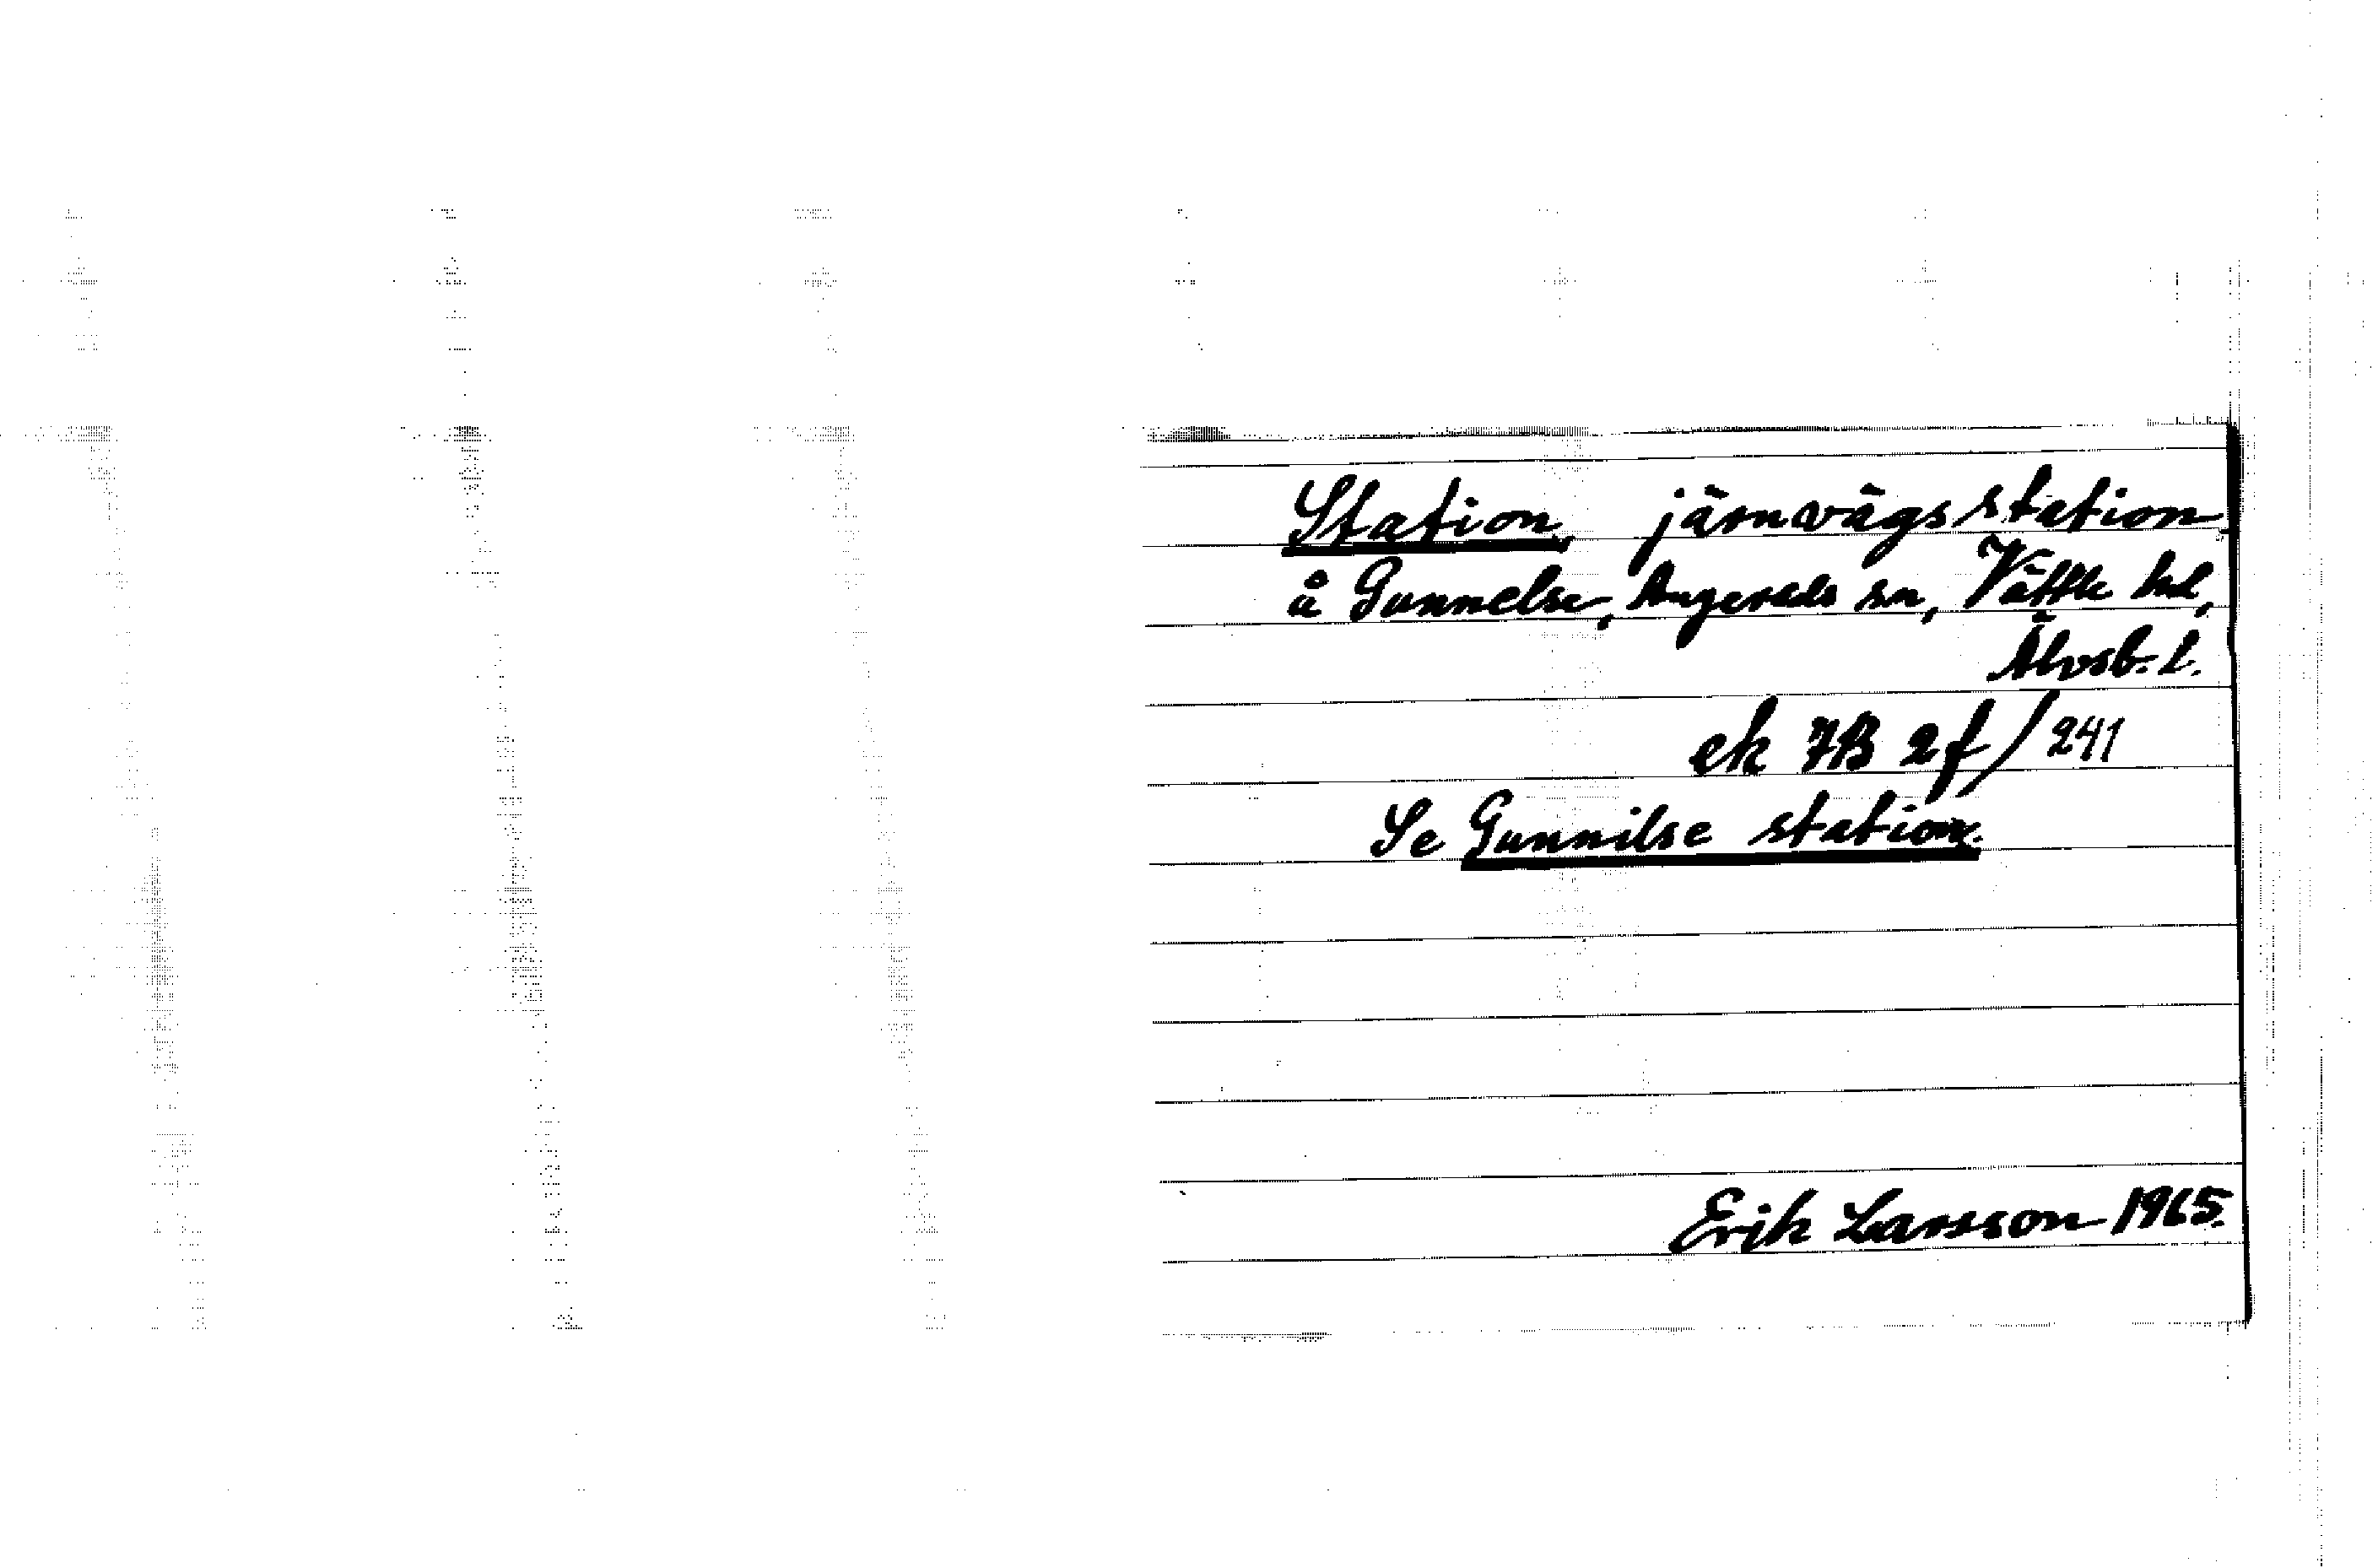 Station, järnvägsstation
å Gunnelse, Angereds sn, Vättle hd,
Älvsb. l.
ek 7B 2f/241
Se Gunnilse station.
Erik Larsson 1965.